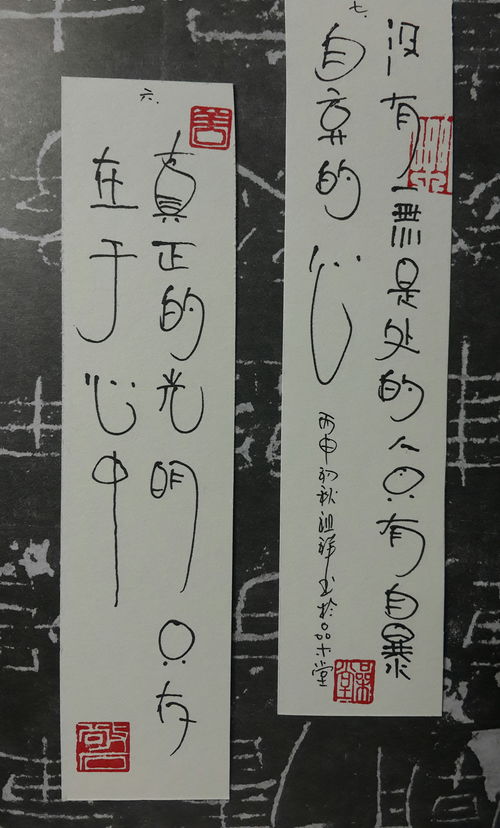 七.
没有一無是处的人只有自暴
自弃的心
丙申初秋祖祥书於品堂
六.
善
真正的光明只存
在于心中